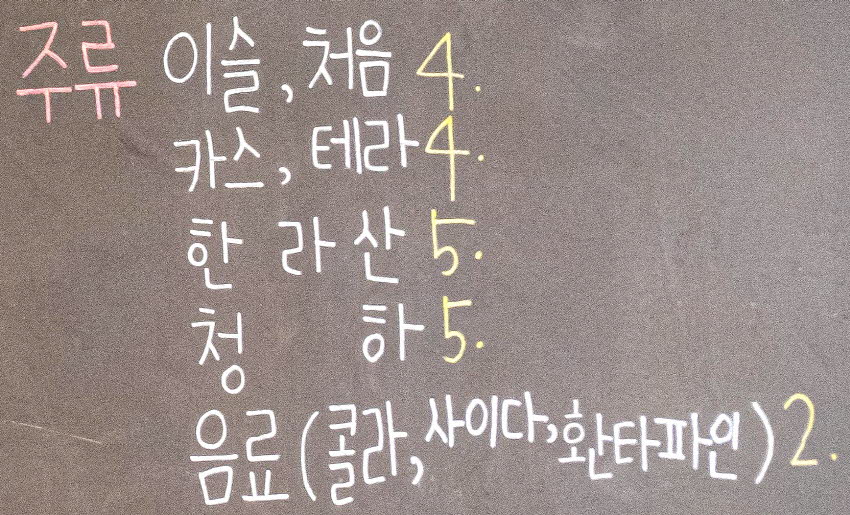 주류 이슬, 처음 4.
카스, 테라 4.
한 라 산 5.
청 하 5.
음료(콜라, 사이다, 환타파인) 2.